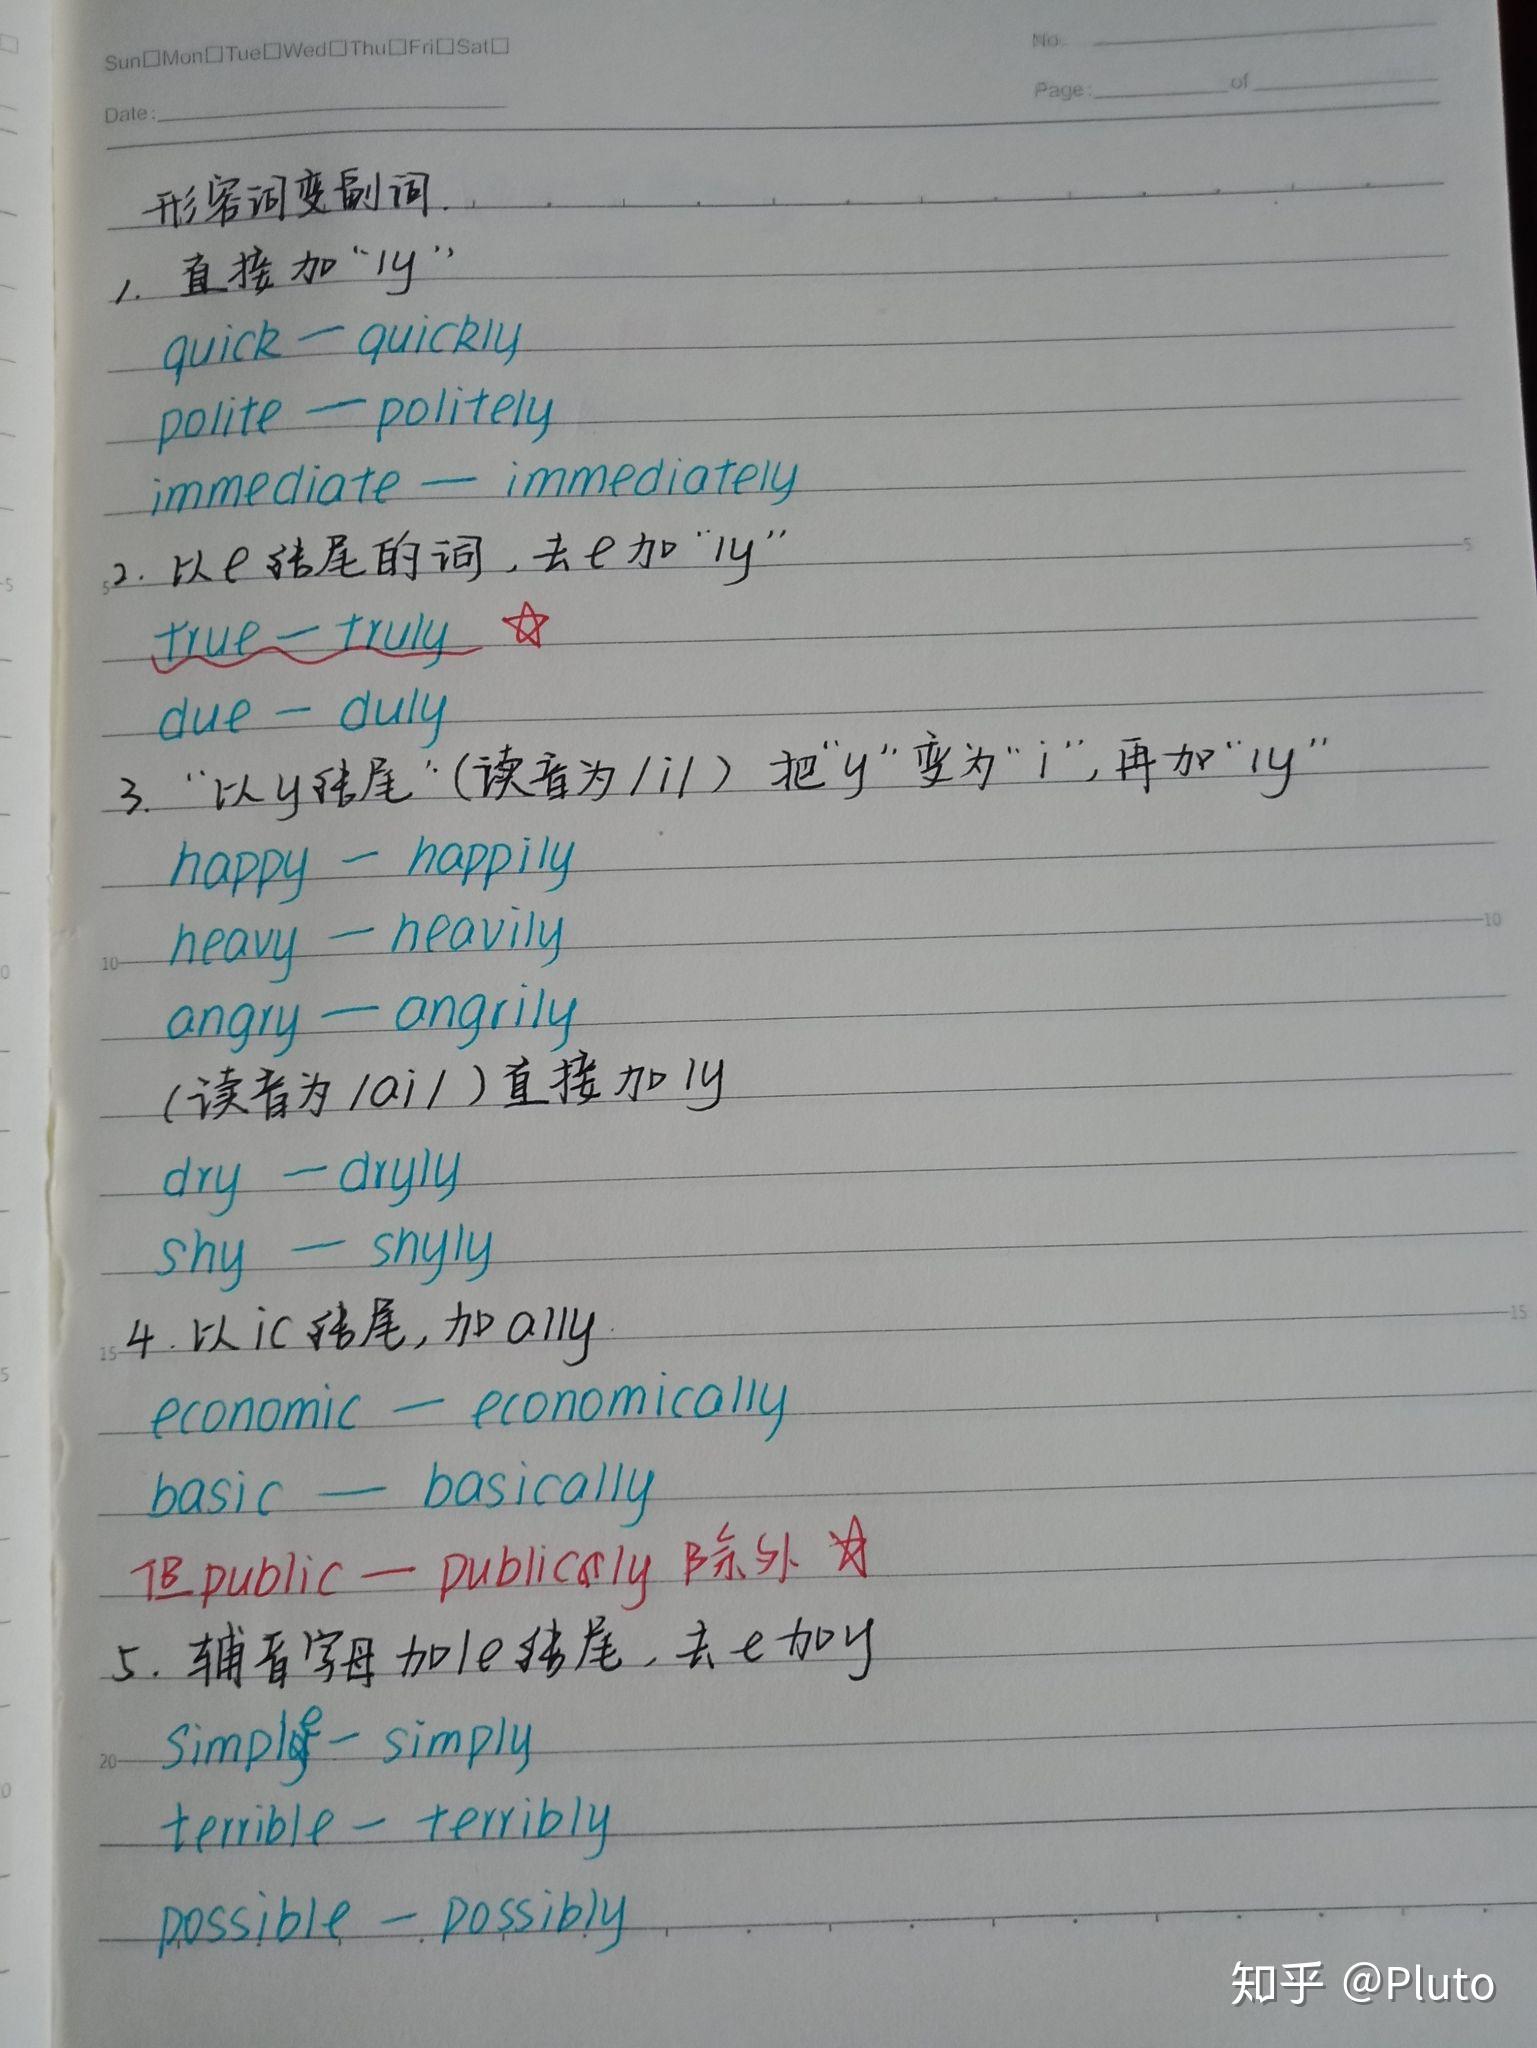 Sun□Mon□Tue□Wed□Thu□Fri□Sat□
No.
Date:
Page: of
形容词变副词.
1. 直接加“ly”
quick — quickly
polite — politely
immediate — immediately
5
2. 以e结尾的词,去e加“ly”
5
true — truly ☆
due — duly
3. “以y结尾”(读音为/i/)把“y”变为“i”,再加“ly”
happy — happily
heavy — heavily
10
10
angry — angrily
(读音为/ai/)直接加ly
dry — dryly
shy — shyly
15
4. 以ic结尾,加ally.
15
economic — economically
basic — basically
但public — publicly 除外 ☆
5. 辅音字母加le结尾,去e加y
simple — simply
20
terrible — terribly
possible — possibly
知乎 @Pluto